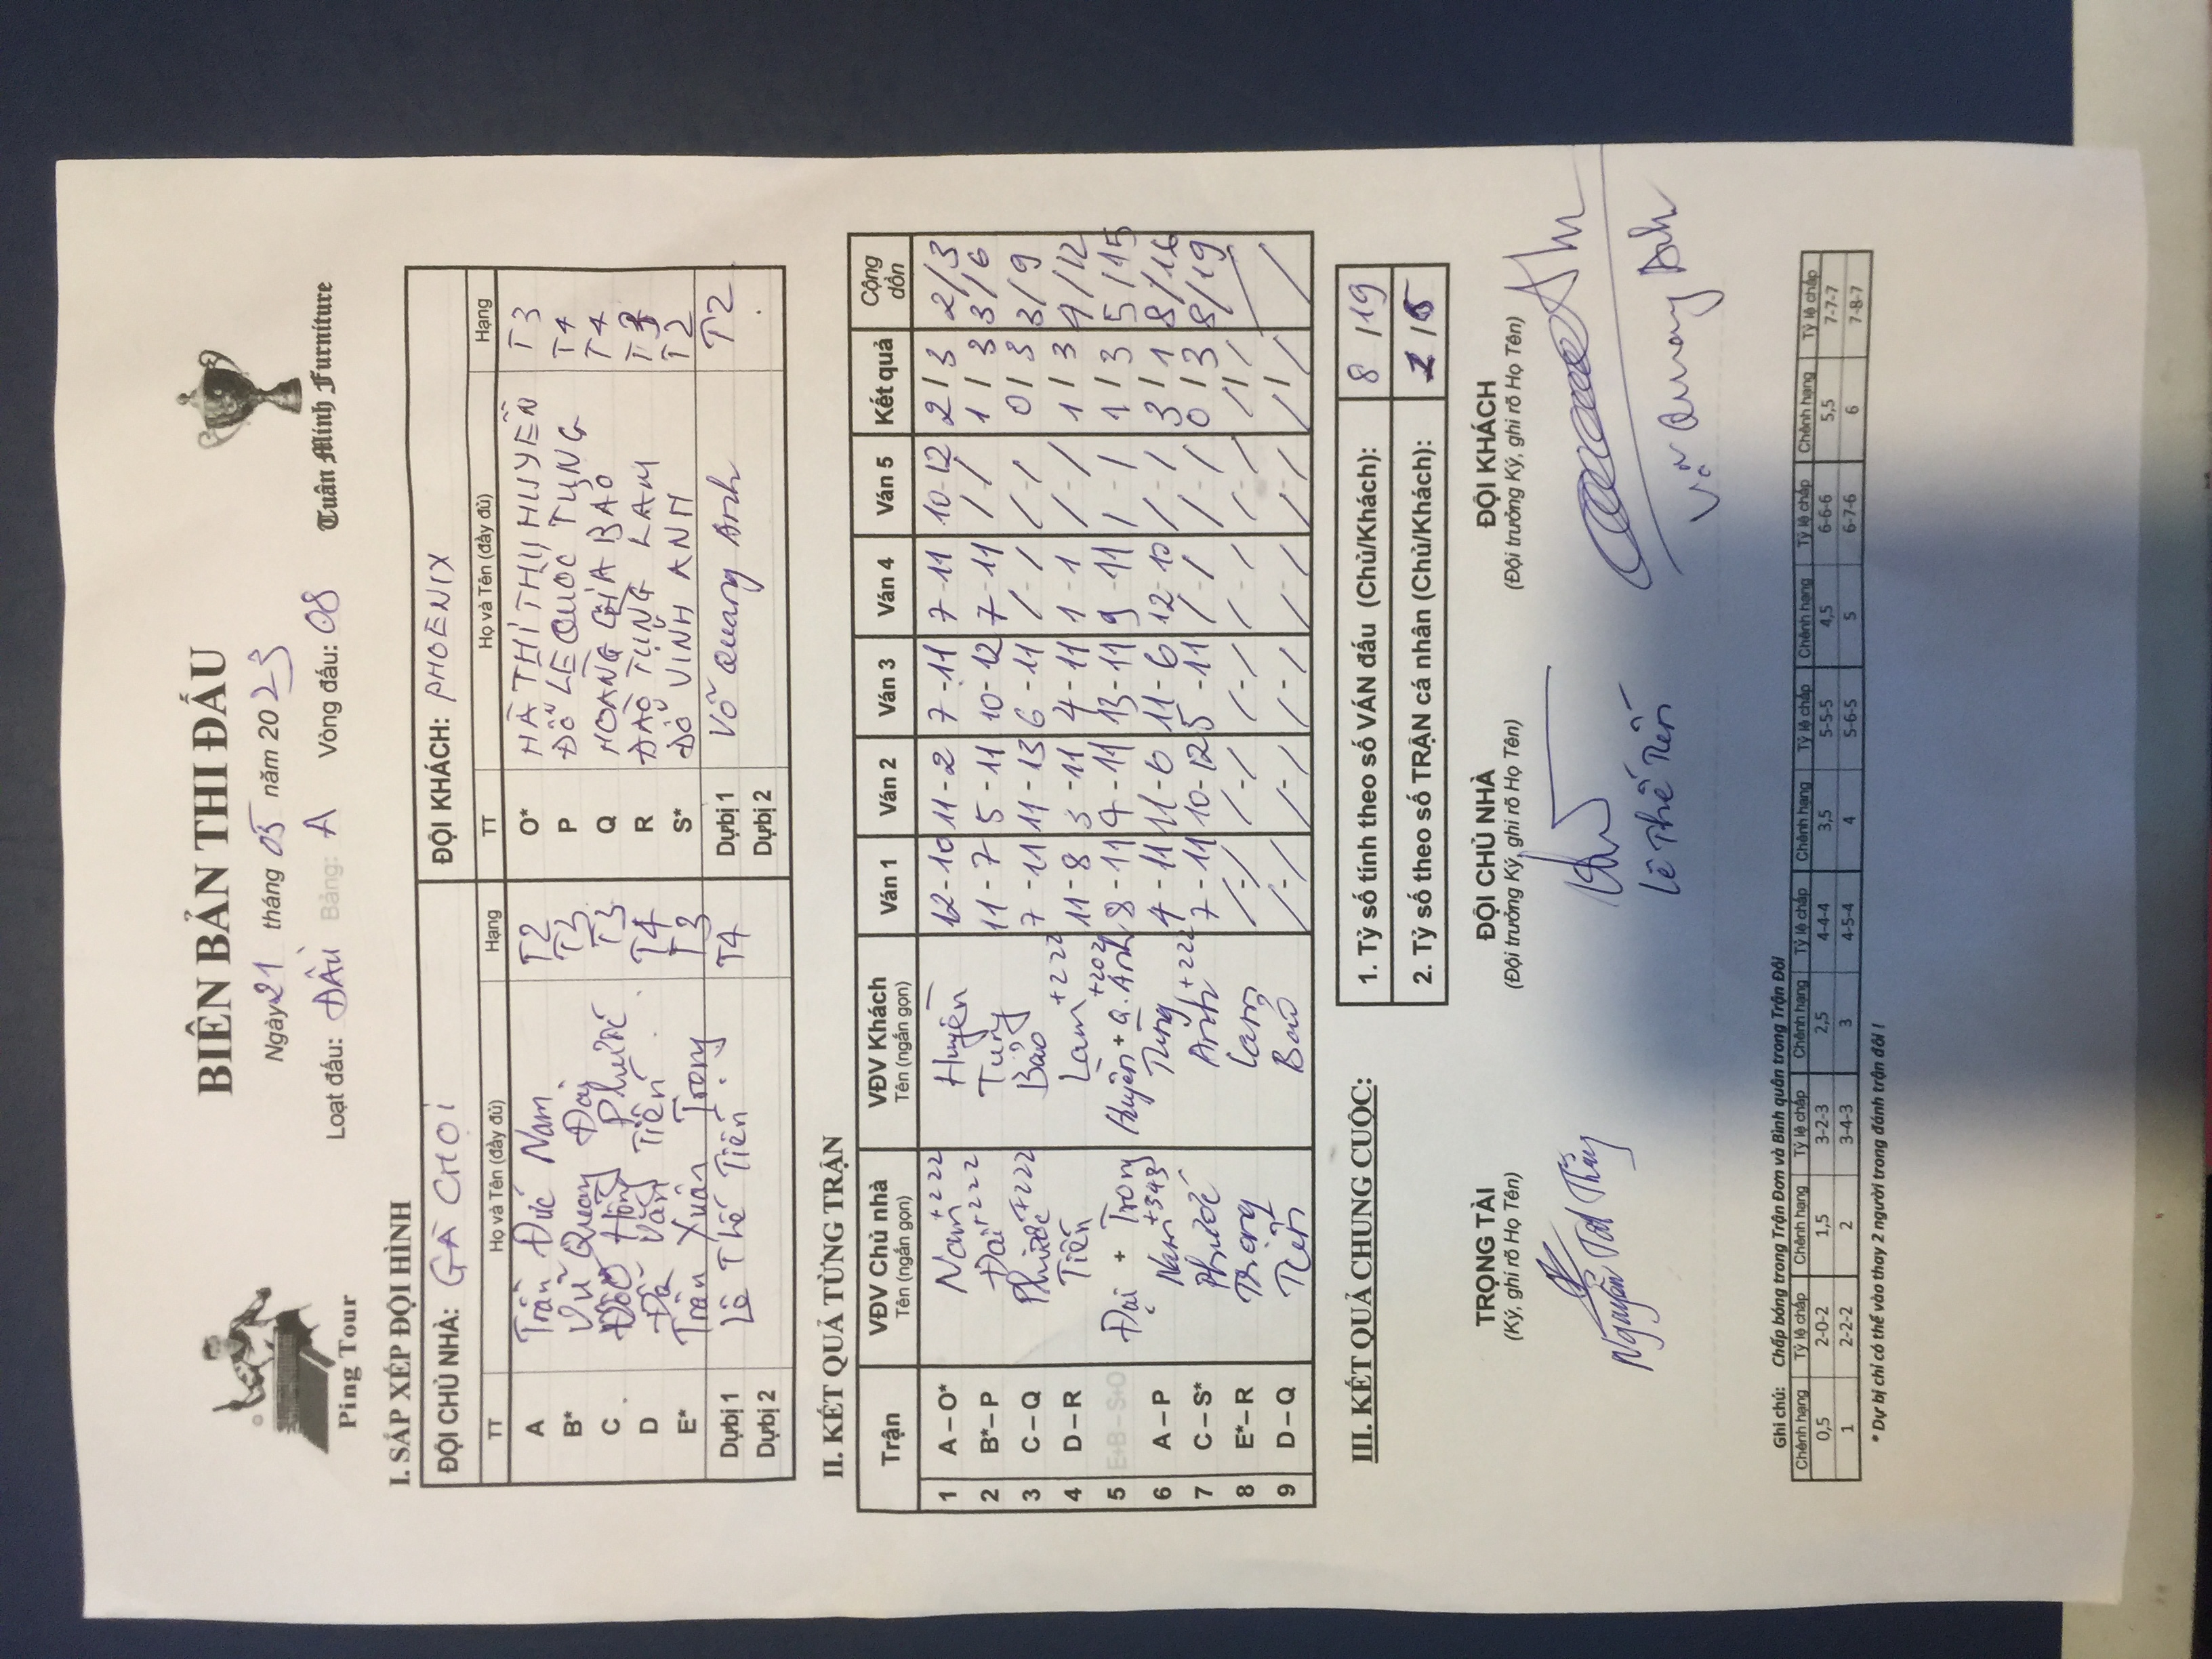 BIÊN BẢN THI ĐẤU
Ngày 21 tháng 05 năm 2023
Loạt đấu: ĐẦU Bảng: A Vòng đấu: 08
Ping Tour
Tuân Minh Furniture
I. SẮP XẾP ĐỘI HÌNH
ĐỘI CHỦ NHÀ: GÀ CHOI ĐỘI KHÁCH: PHOENIX
TT Họ và Tên (đầy đủ) Hạng TT Họ và Tên (đầy đủ) Hạng
A Trần Đức Nam T2 O* HÀ THỊ THU HUYỀN T3
B* Vũ Quang Đại T3 P ĐỖ LÊ QUỐC TỤNG T4
C Hồng Phước T3 Q HOÀNG GIA BẢO T4
D Văn Tiến T4 R ĐÀO TÙNG LAM T3
E* Trần Xuân Trọng T3 S* ĐỖ VINH ANH T2
Dự bị 1 Lê Thế Tiến T4 Dự bị 1 Võ Quang Anh T2
Dự bị 2 Dự bị 2
II. KẾT QUẢ TỪNG TRẬN
Trận VĐV Chủ nhà Tên (ngắn gọn) VĐV Khách Tên (ngắn gọn) Ván 1 Ván 2 Ván 3 Ván 4 Ván 5 Kết quả Cộng dồn
1 A – O* Nam +222 Huyền 12-10 11-2 7-11 7-11 10-12 2/3 2/3
2 B* – P Đại +222 Tụng 11-7 5-11 10-12 7-11 /-/ 1/3 3/6
3 C – Q Phước +222 Bảo 7-11 11-13 6-11 /-/ /-/ 0/3 3/9
4 D – R Tiến Lam +222 11-8 3-11 4-11 1-1 /-/ 1/3 4/12
5 E+B – S+O Đại + Trọng Huyền + Q. Anh +202 8-11 4-11 13-11 9-11 /-/ 1/3 5/15
6 A – P Nam +343 Tùng 4-11 11-6 11-6 12-10 /-/ 3/1 8/16
7 C – S* Phước Anh +222 7-11 10-12 5-11 /-/ /-/ 0/3 8/19
8 E* – R Trọng Lam /-/ /-/ /-/ /-/ /-/ /// /
9 D – Q Tiến Bảo /-/ /-/ /-/ /-/ /-/ /// /
III. KẾT QUẢ CHUNG CUỘC:
1. Tỷ số tính theo số VÁN đấu (Chủ/Khách): 8 / 19
2. Tỷ số theo số TRẬN cá nhân (Chủ/Khách): 1 / 5
TRỌNG TÀI ĐỘI CHỦ NHÀ ĐỘI KHÁCH
(Ký, ghi rõ Họ Tên) (Đội trưởng Ký, ghi rõ Họ Tên) (Đội trưởng Ký, ghi rõ Họ Tên)
Nguyễn Tất Thắng Lê Thế Tiến Võ Quang Anh
Ghi chú: Chấp bóng trong Trận Đơn và Bình quân trong Trận Đôi
Chênh hạng Tỷ lệ chấp Chênh hạng Tỷ lệ chấp Chênh hạng Tỷ lệ chấp Chênh hạng Tỷ lệ chấp Chênh hạng Tỷ lệ chấp Chênh hạng Tỷ lệ chấp
0,5 2-0-2 1,5 3-2-3 2,5 4-4-4 3,5 5-5-5 4,5 6-6-6 5,5 7-7-7
1 2-2-2 2 3-4-3 3 4-5-4 4 5-6-5 5 6-7-6 6 7-8-7
* Dự bị chỉ có thể vào thay 2 người trong đánh trận đôi !